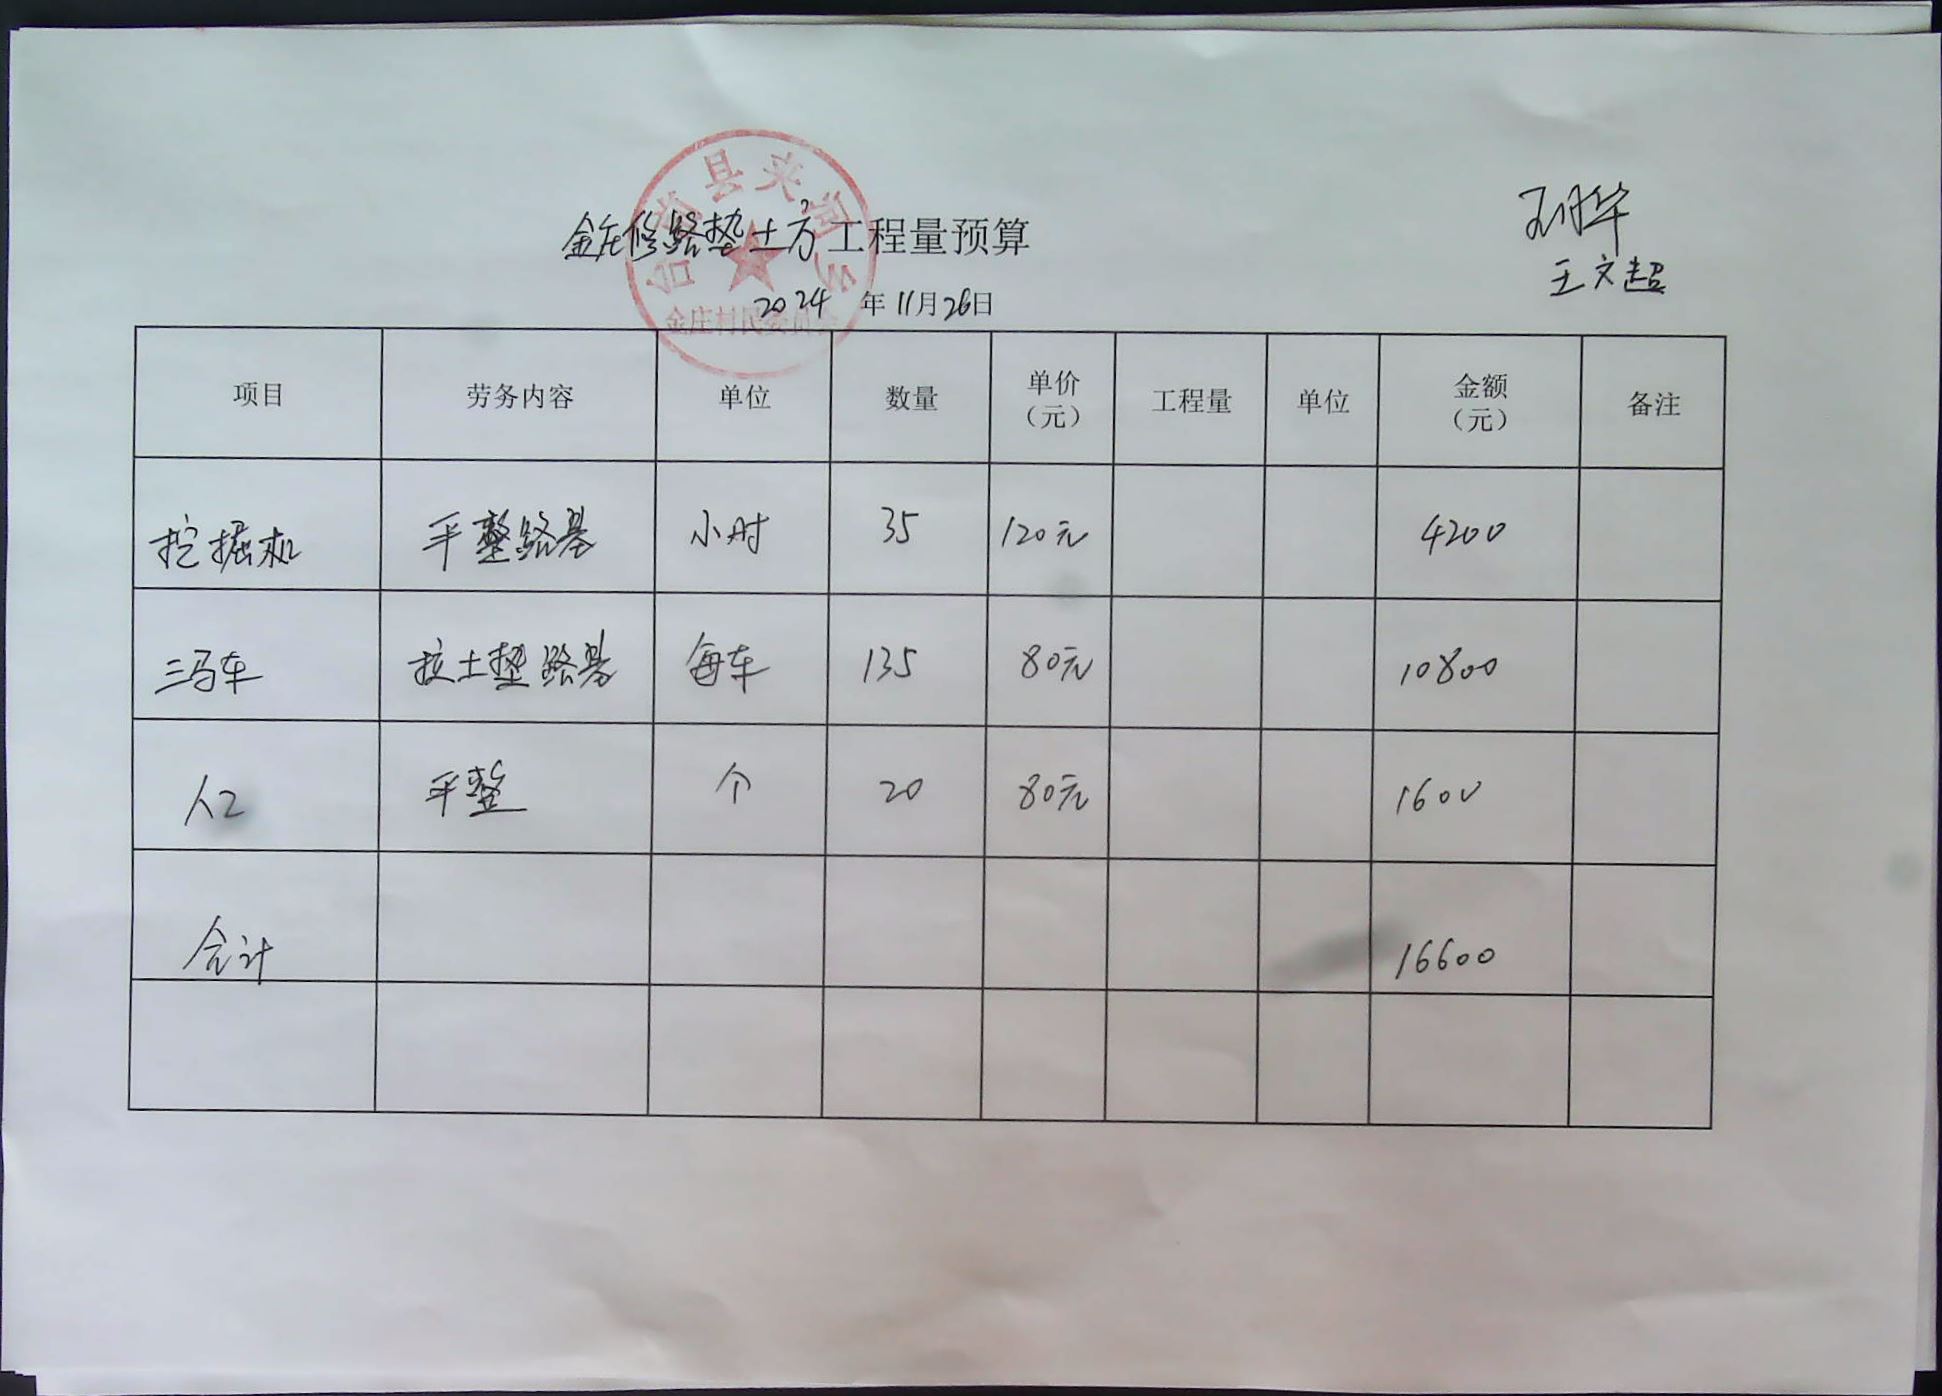 台前县夹河乡
金庄村民委员会
金庄修路垫土方工程量预算
王文超
2024年11月26日
项目 劳务内容 单位 数量 单价（元） 工程量 单位 金额（元） 备注
挖掘机 平整路基 小时 35 120元 4200
三马车 拉土垫路基 每车 135 80元 10800
人工 平整 个 20 80元 1600
合计 16600